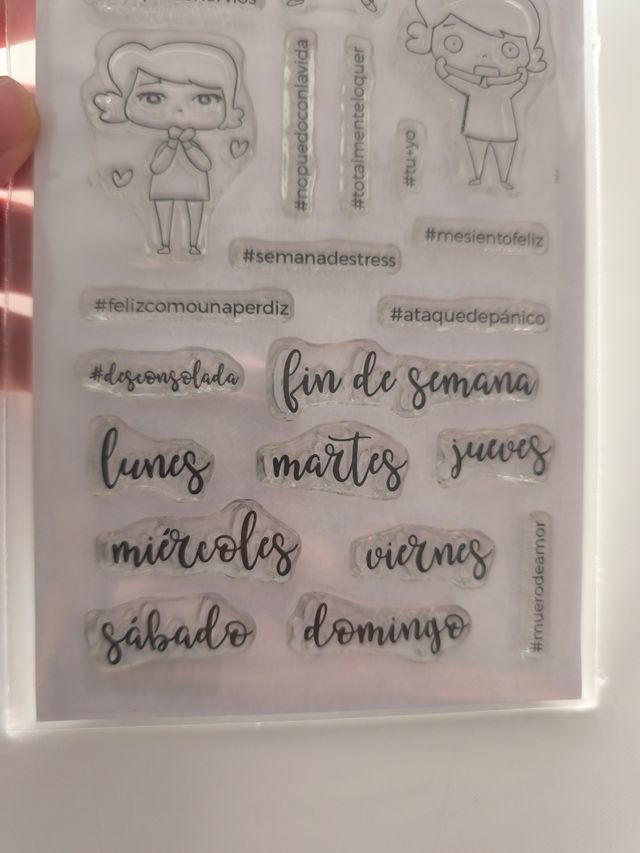 #nopuedoconlavida
#totalmenteloquer
#tu+yo
#mesientofeliz
#semanadestress
#felizcomounaperdiz
#ataquedepánico
#desconsolada
fin de semana
lunes
martes
jueves
miércoles
viernes
#muerodeamor
sábado
domingo